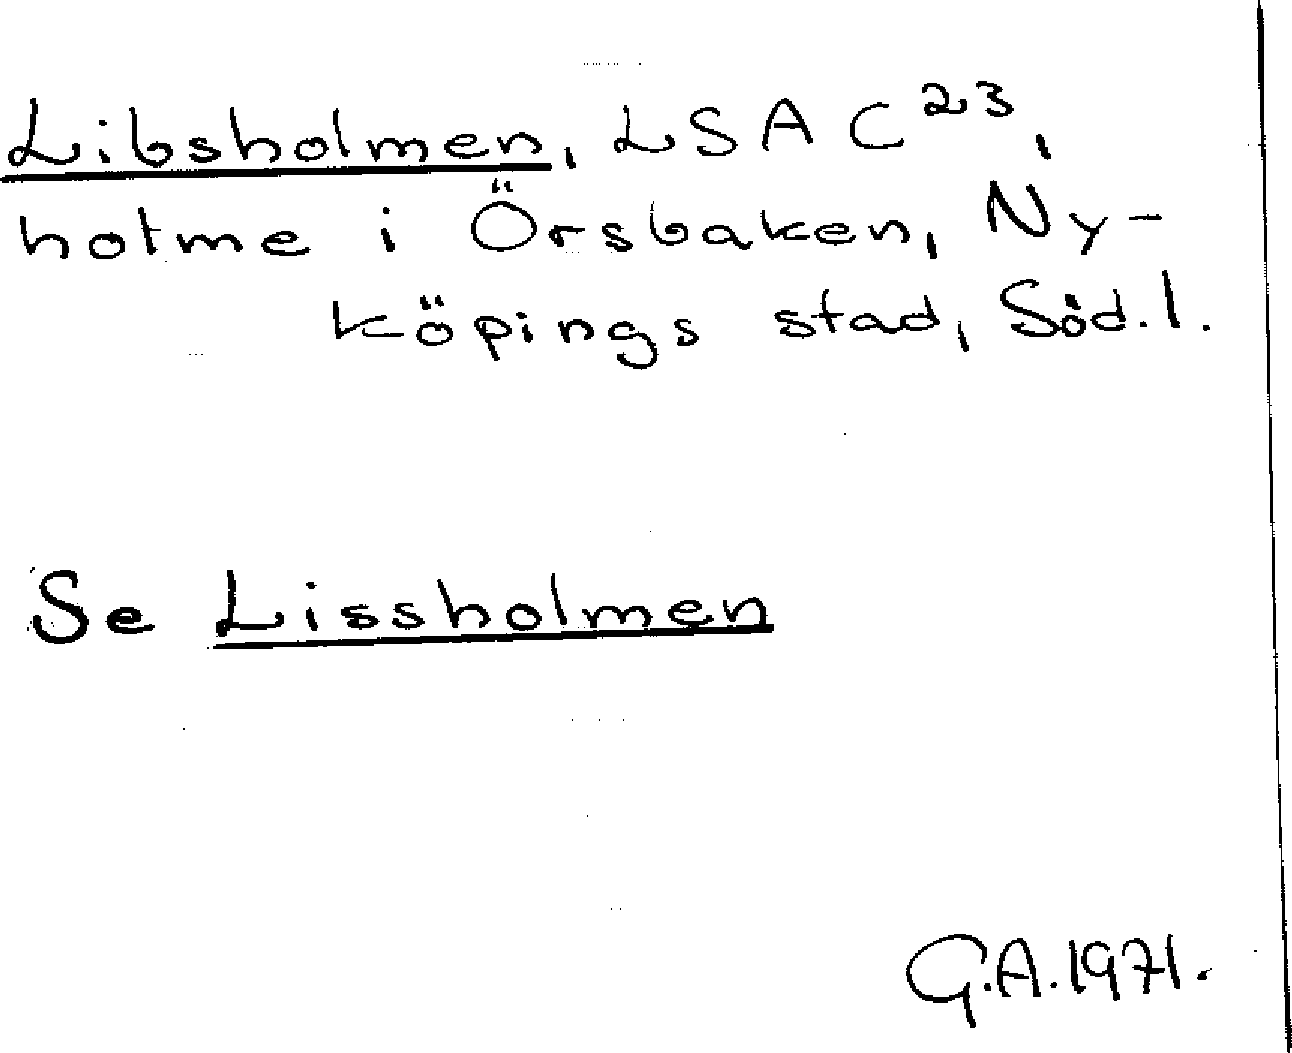 Libsholmen, LSA C23,
holme i Örsbaken, Ny-
köpings stad, Söd.l.
Se Lissholmen
G.A.1971.